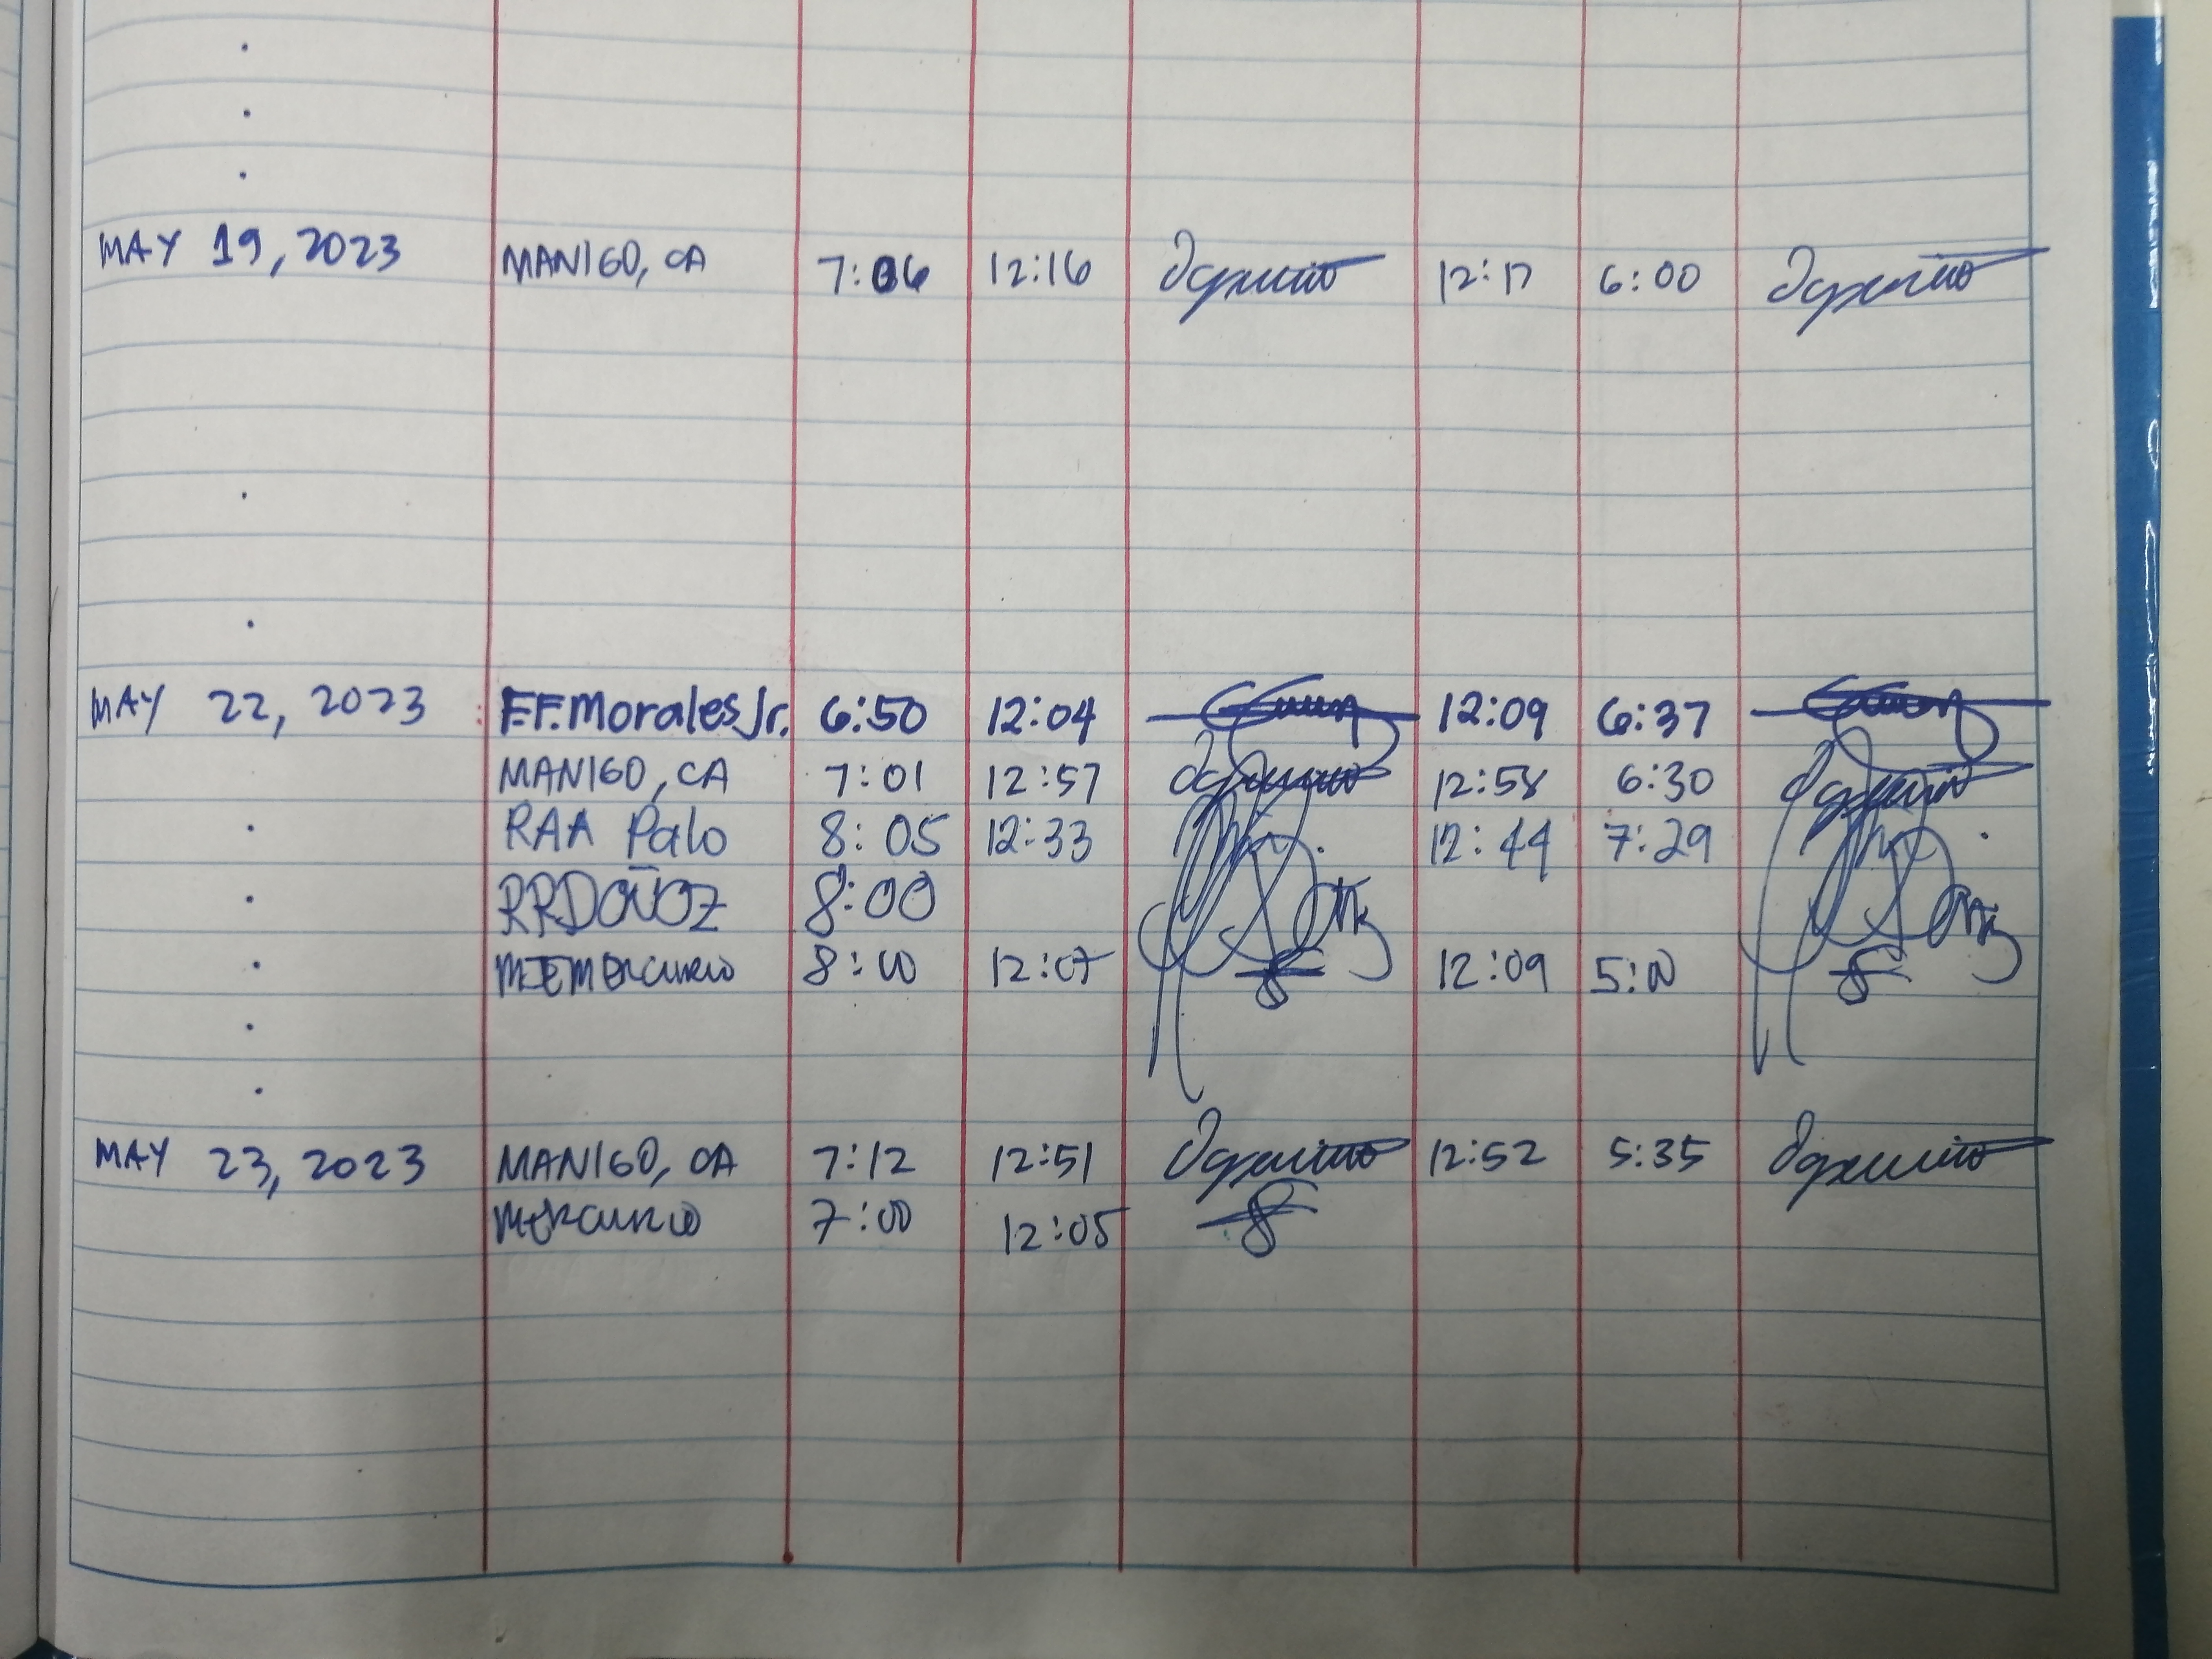 MAY 19, 2023 MANIGO, CA 7:06 12:16 12:17 6:00
MAY 22, 2023 F.F. Morales Jr. 6:50 12:04 12:09 6:37
MANIGO, CA 7:01 12:57 12:58 6:30
RAA Palo 8:05 12:33 12:44 7:29
RRDOÑOZ 8:00
MEMErcurio 8:00 12:07 12:09 5:00
MAY 23, 2023 MANIGO, CA 7:12 12:51 12:52 5:35
MErcurio 7:00 12:05